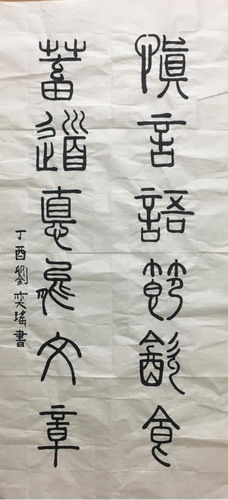 慎言語節飲食
蓄道德能文章
丁酉劉奕瑤書